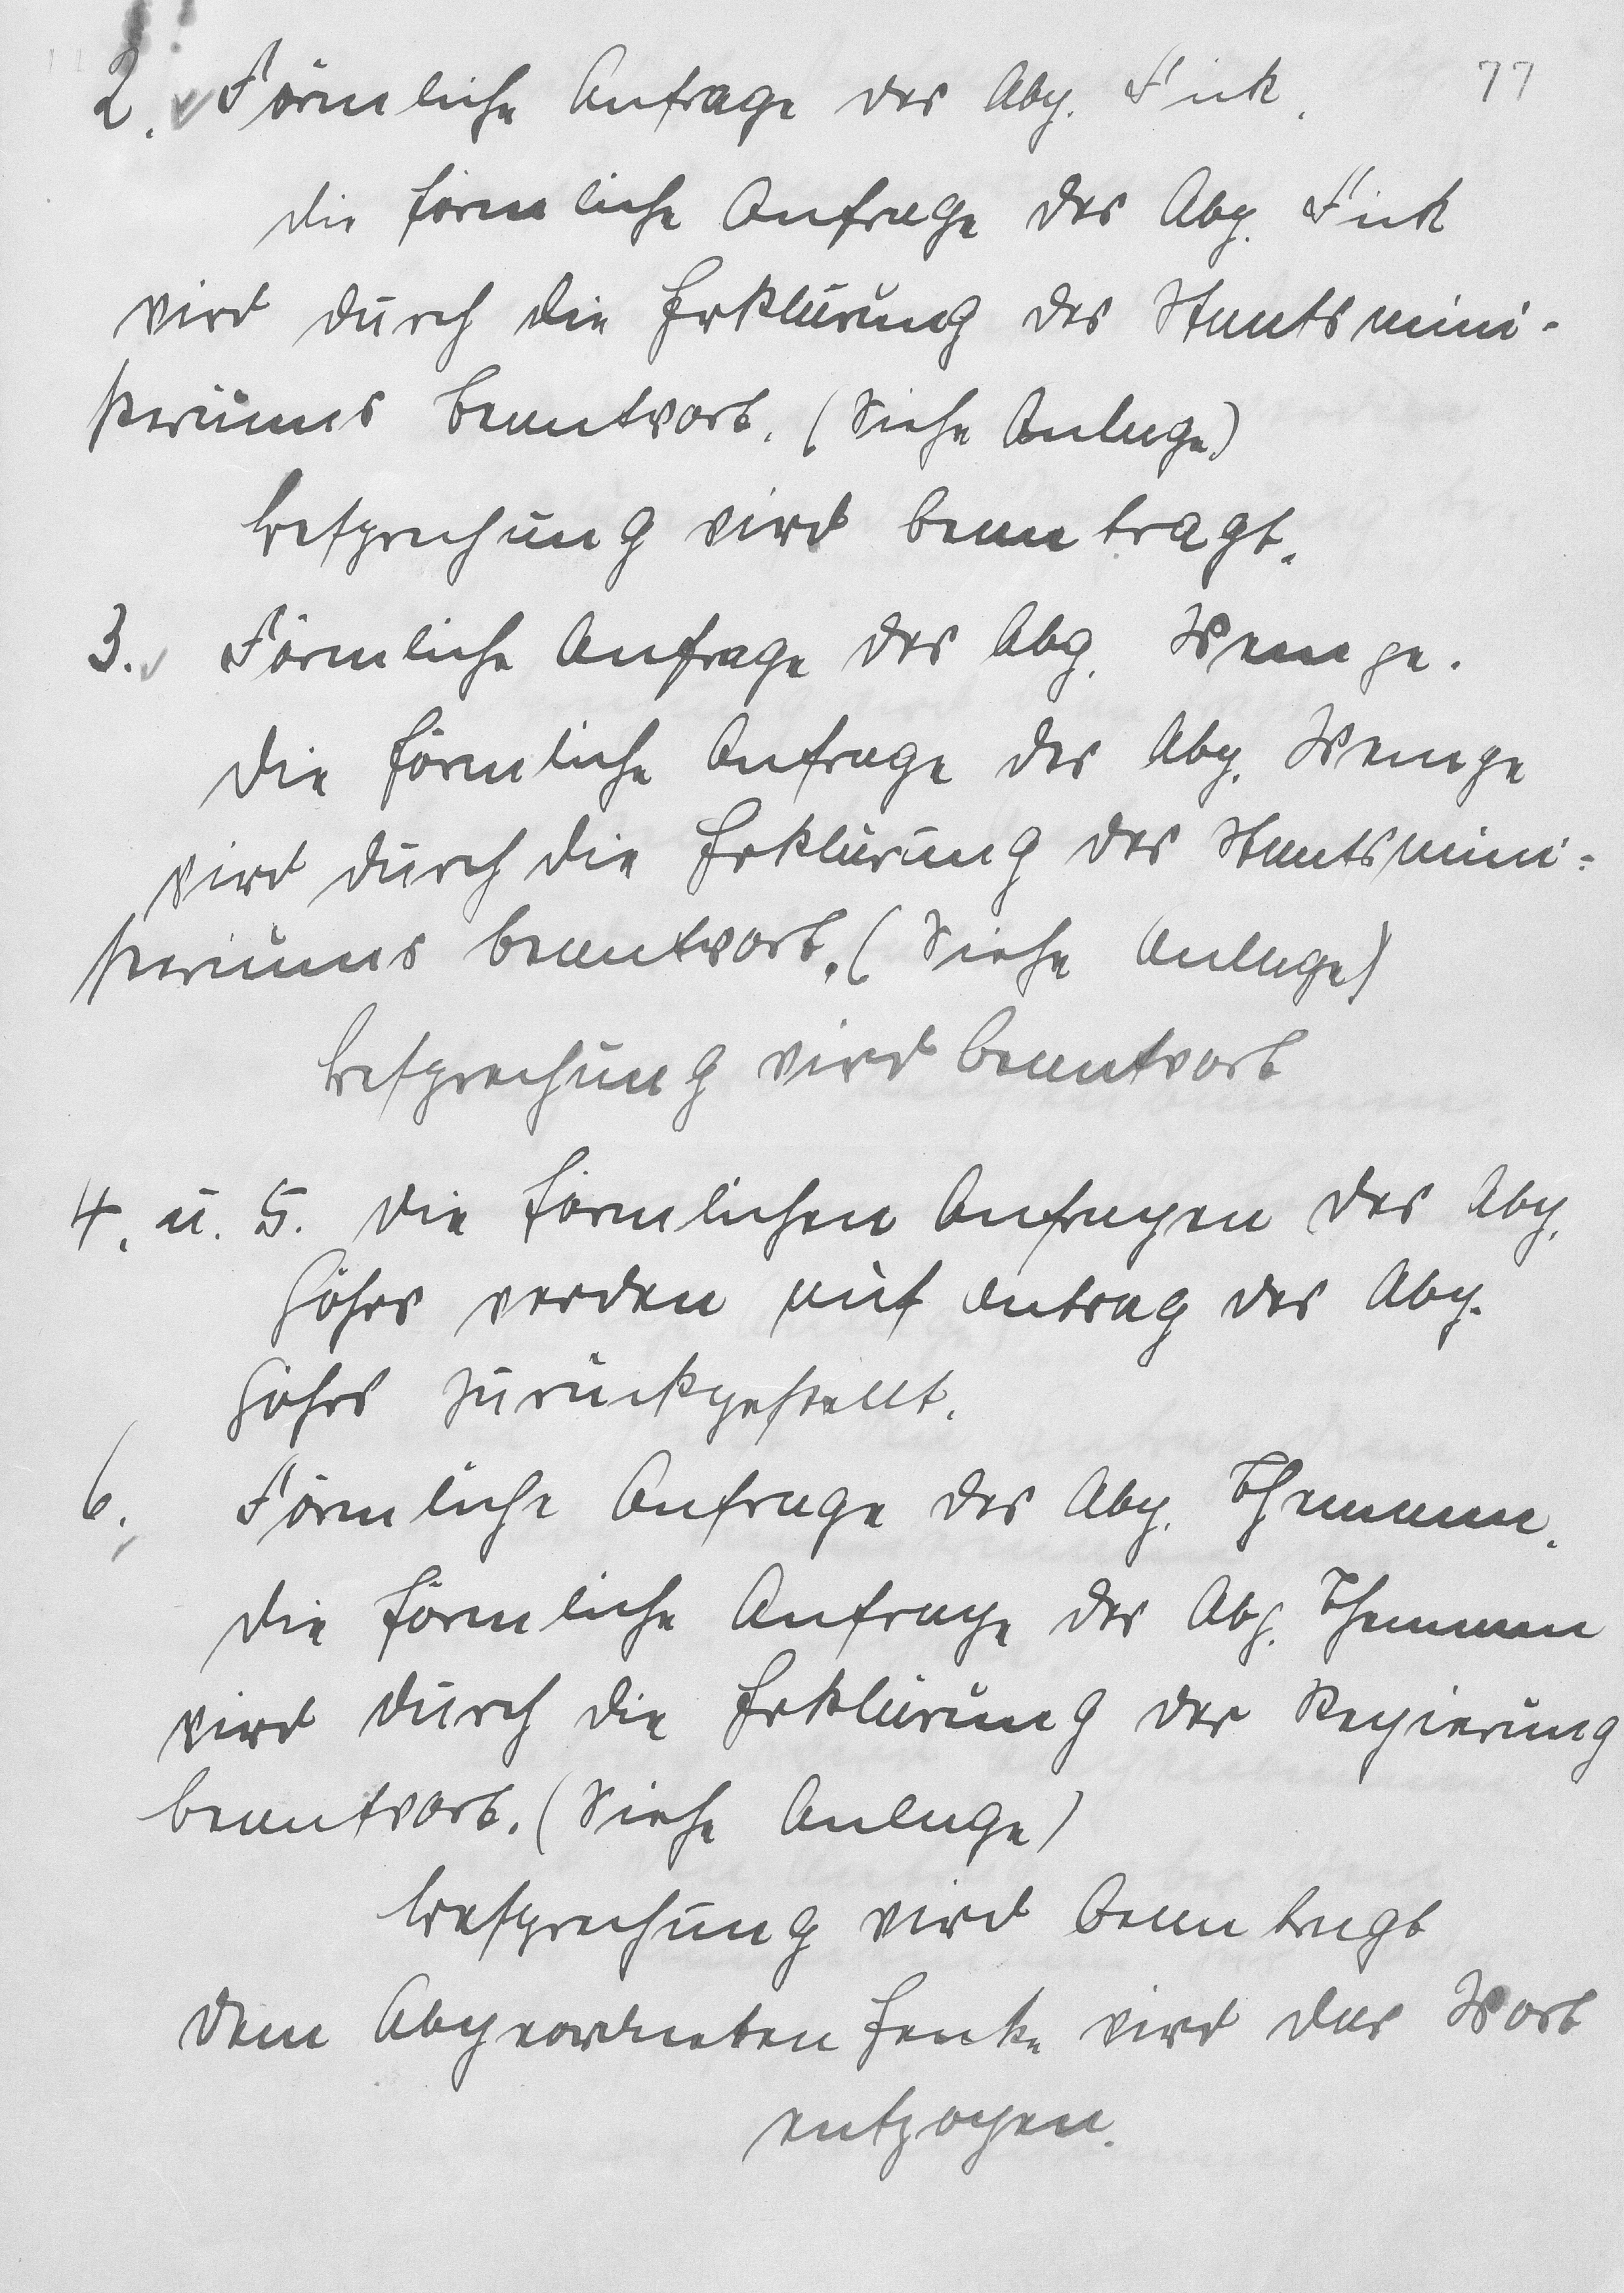 77
2. Förmliche Anfrage des Abg. Fick.
die förmliche Anfrage des Abg. Fick
wird durch die Erklärung des Staatsmini-
steriums beantwort. (Siehe Anlage)
Besprechung wird beantragt.
3. Förmliche Anfrage des Abg. Wempe.
die förmliche Anfrage des Abg. Wempe
wird durch die Erklärung des Staatsmini-
steriums beantwort. (Siehe Anlage)
Besprechung wird beantwort
4. u. 5. die förmlichen Anfragen des Abg.
Göhrs werden auf Antrag des Abg.
Göhrs zurückgestellt.
6. Förmliche Anfrage des Abg. Themann.
die förmliche Anfrage des Abg. Themann
wird durch die Erklärung der Regierung
beantwort. (Siehe Anlage)
Besprechung wird beantragt
dem Abgeordneten wird das Wort
entzogen.